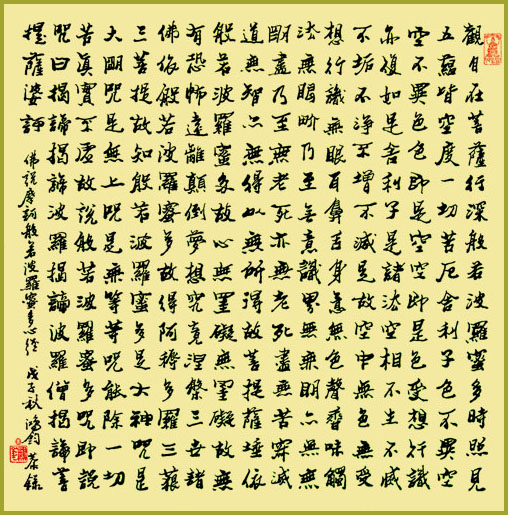 觀自在菩薩行深般若波羅蜜多時照見
五蘊皆空度一切苦厄舍利子色不異空
空不異色色即是空空即是色受想行識
亦復如是舍利子是諸法空相不生不滅
不垢不淨不增不減是故空中無色無受
想行識無眼耳鼻舌身意無色聲香味觸
法無眼界乃至無意識界無無明亦無無
明盡乃至無老死亦無老死盡無苦寀滅
道無智亦無得以無所得故菩提薩埵依
般若波羅蜜多故心無罣礙無罣礙故無
有恐怖遠離顛倒夢想究竟涅槃三世諸
佛依般若波羅蜜多故得阿耨多羅三藐
三菩提故知般若波羅蜜多是大神咒是
大明咒是無上咒是無等等咒能除一切
苦真實不虛故說般若波羅蜜多咒即說
咒曰揭諦揭諦波羅揭諦波羅僧揭諦菩
提薩婆訶 佛說摩訶般若波羅蜜多心經 戊子秋鴻鈞恭錄